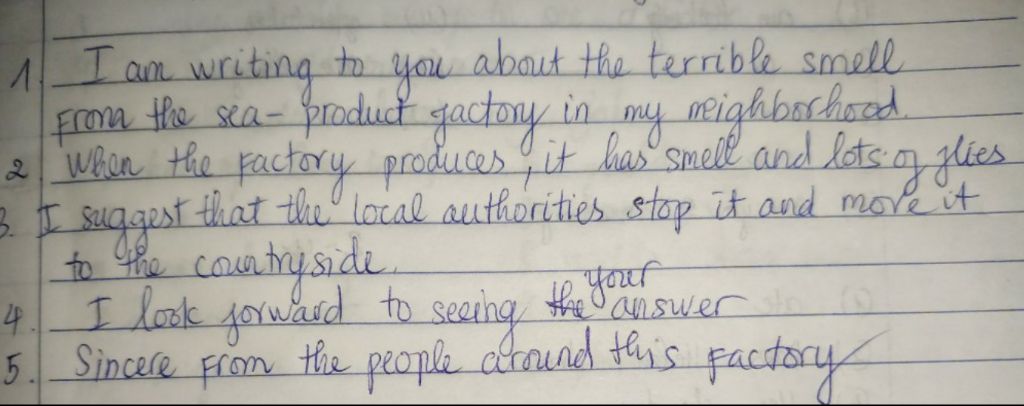 1. I am writing to you about the terrible smell
From the sea-product factory in my neighborhood.
2 When the Factory produces, it has smell and lots of flies
3. I suggest that the local authorities stop it and move it
to the countryside.
4. I look forward to seeing the your answer
5. Sincere From the people around this Factory